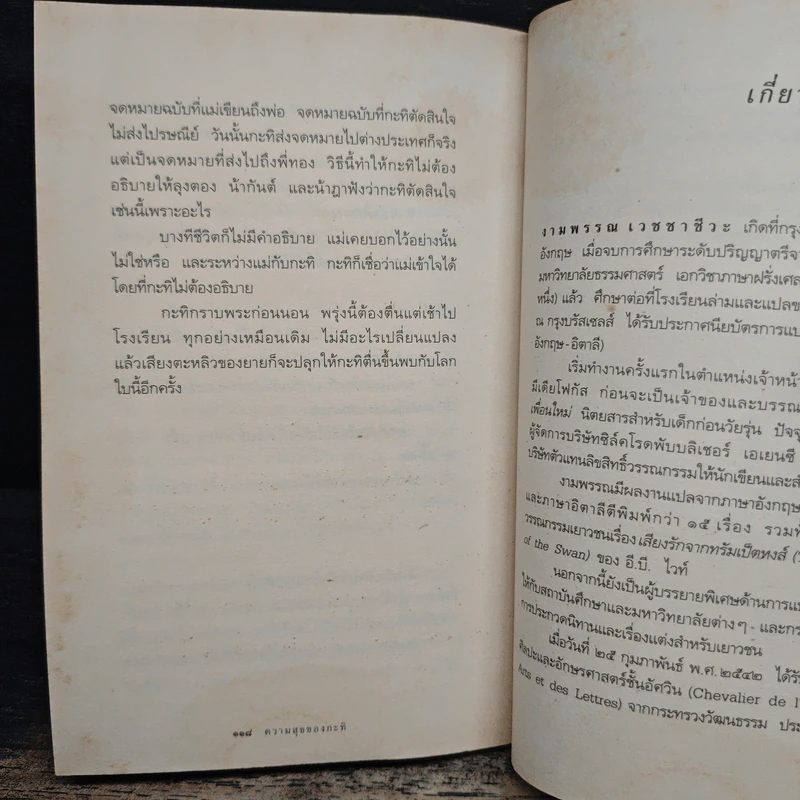 จดหมายฉบับที่แม่เขียนถึงพ่อ จดหมายฉบับที่กะทิตัดสินใจ
ไม่ส่งไปรษณีย์ วันนั้นกะทิส่งจดหมายไปต่างประเทศก็จริง
แต่เป็นจดหมายที่ส่งไปถึงพี่ทอง วิธีนี้ทำให้กะทิไม่ต้อง
อธิบายให้ลุงตอง น้ากันต์ และน้าฎาฟังว่ากะทิตัดสินใจ
เช่นนี้เพราะอะไร
บางทีชีวิตก็ไม่มีคำอธิบาย แม่เคยบอกไว้อย่างนั้น
ไม่ใช่หรือ และระหว่างแม่กับกะทิ กะทิก็เชื่อว่าแม่เข้าใจได้
โดยที่กะทิไม่ต้องอธิบาย
กะทิกราบพระก่อนนอน พรุ่งนี้ต้องตื่นแต่เช้าไป
โรงเรียน ทุกอย่างเหมือนเดิม ไม่มีอะไรเปลี่ยนแปลง
แล้วเสียงตะหลิวของยายก็จะปลุกให้กะทิตื่นขึ้นพบกับโลก
ใบนี้อีกครั้ง
๑๑๘ ความสุขของกะทิ
เกี่ยว
งามพรรณ เวชชาชีวะ เกิดที่กรุง
อังกฤษ เมื่อจบการศึกษาระดับปริญญาตรีจา
มหาวิทยาลัยธรรมศาสตร์ เอกวิชาภาษาฝรั่งเศส
หนึ่ง) แล้ว ศึกษาต่อที่โรงเรียนล่ามและแปลข
ณ กรุงบรัสเซลส์ ได้รับประกาศนียบัตรการแป
อังกฤษ-อิตาลี)
เริ่มทำงานครั้งแรกในตำแหน่งเจ้าหน้า
มีเดียโฟกัส ก่อนจะเป็นเจ้าของและบรรณ
เพื่อนใหม่ นิตยสารสำหรับเด็กก่อนวัยรุ่น ปัจจุ
ผู้จัดการบริษัทซิล์คโรดพับบลิเชอร์ เอเยนซี
บริษัทตัวแทนลิขสิทธิ์วรรณกรรมให้นักเขียนและสำ
งามพรรณมีผลงานแปลจากภาษาอังกฤษ
และภาษาอิตาลีตีพิมพ์กว่า ๑๕ เรื่อง รวมทั้
วรรณกรรมเยาวชนเรื่อง เสียงรักจากทรัมเป็ตหงส์ (
of the Swan) ของ อี.บี. ไวท์
นอกจากนี้ยังเป็นผู้บรรยายพิเศษด้านการแป
ให้กับสถาบันศึกษาและมหาวิทยาลัยต่างๆ และกร
การประกวดนิทานและเรื่องแต่งสำหรับเยาวชน
เมื่อวันที่ ๒๕ กุมภาพันธ์ พ.ศ.๒๕๔๒ ได้รับ
ศิลปะและอักษรศาสตร์ชั้นอัศวิน (Chevalier de l'
Arts et des Lettres) จากกระทรวงวัฒนธรรม ประ